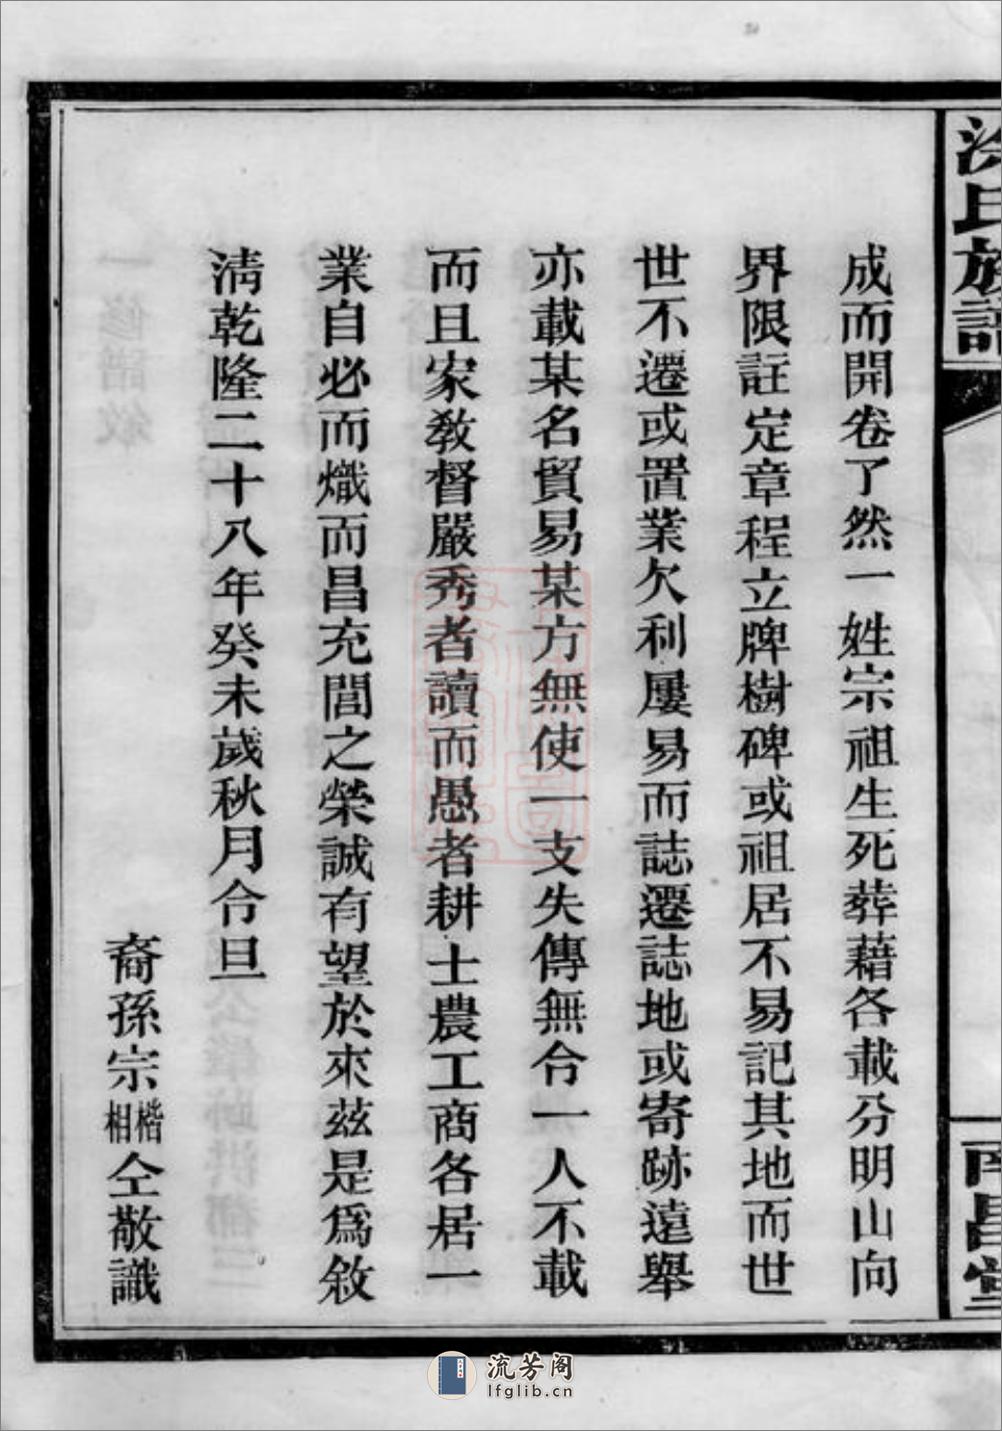 氏族譜
南昌堂
成而開卷了然一姓宗祖生死葬藉各載分明山向
界限註定章程立牌樹碑或祖居不易記其地而世
世不遷或置業欠利屢易而誌遷誌地或寄跡遠舉
亦載某名貿易某方無使一支失傳無令一人不載
而且家教督嚴秀者讀而愚者耕士農工商各居一
業自必而熾而昌充閭之榮誠有望於來茲是為敘
淸乾隆二十八年癸未歲秋月令旦
裔孫宗楷相仝敬識
流芳阁
lfglib.cn